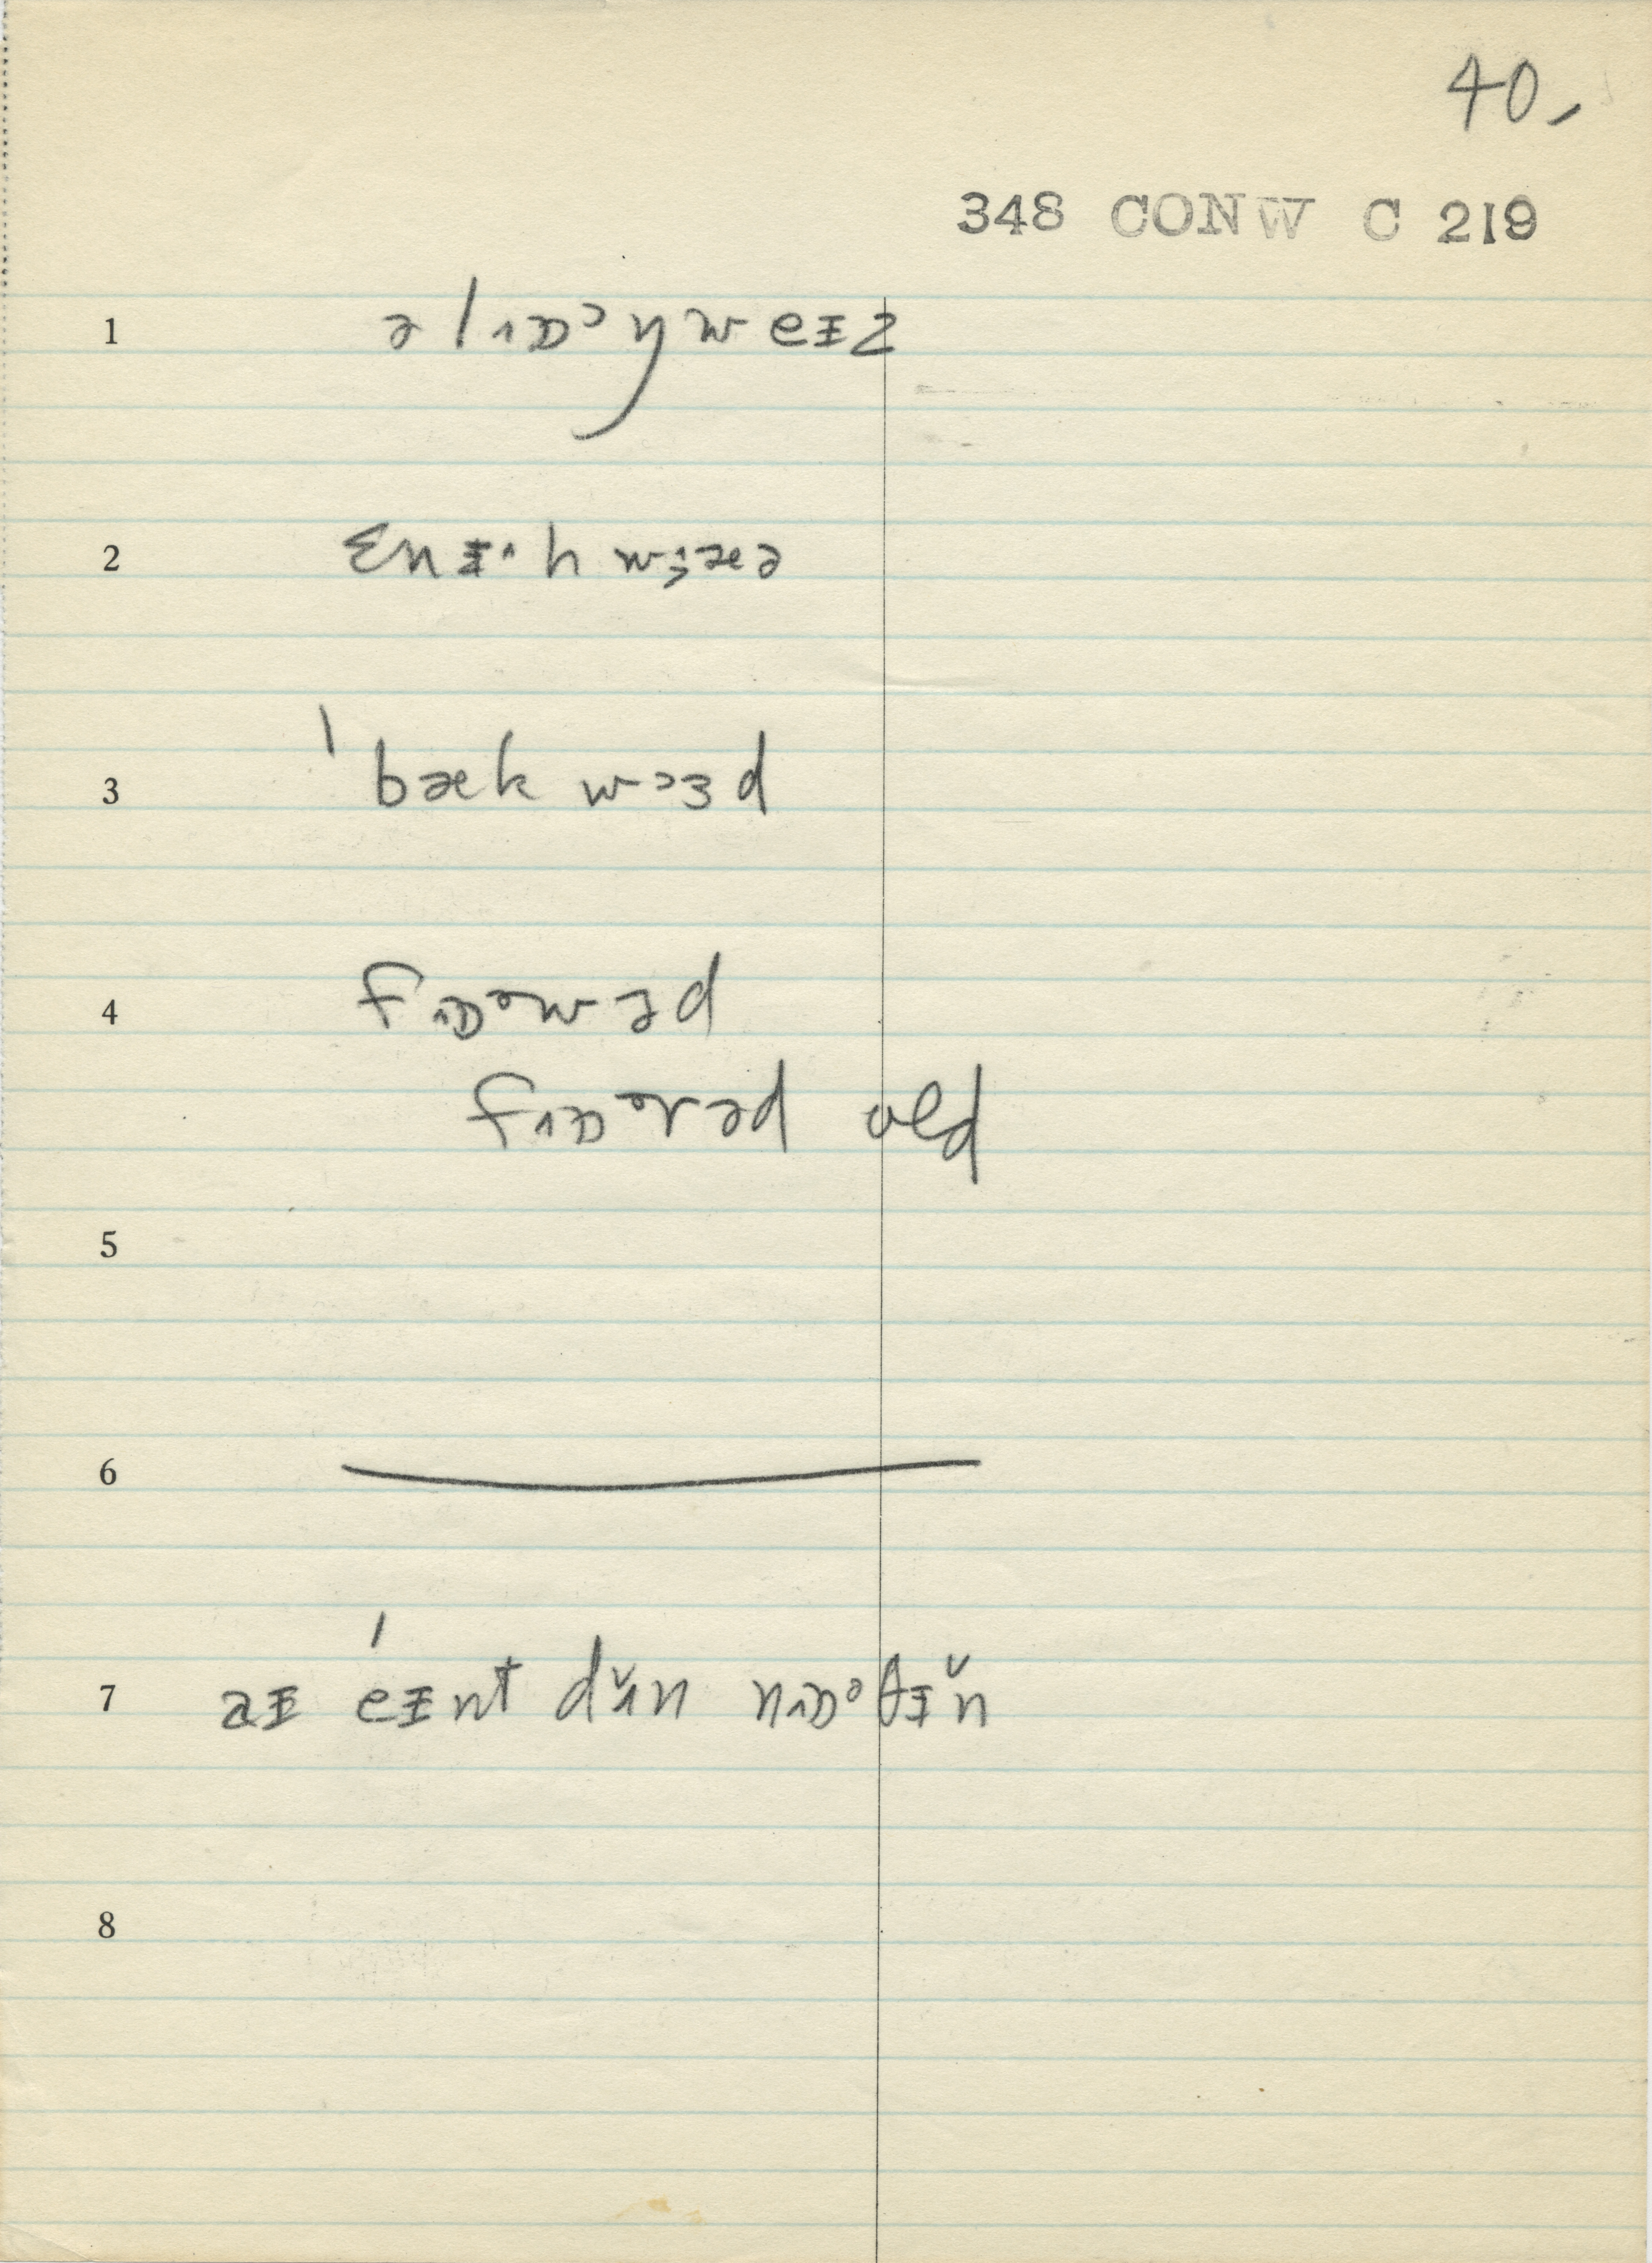 40.
348 CONW C 219
1 ə l ɒ ɔ ŋ w eɪz
2 ɛnɪ h wæə
3 ˈbæk wɔɜd
4 fɒowəd
fɒorəd old
5
6
7 aɪ ˈeɪnt dʌ̆n nɒoθɪ̆n
8